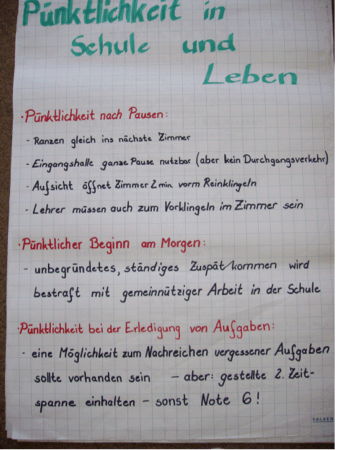 Pünktlichkeit in
Schule und
Leben
· Pünktlichkeit nach Pausen:
- Ranzen gleich ins nächste Zimmer
- Eingangshalle ganze Pause nutzbar (aber kein Durchgangsverkehr)
- Aufsicht öffnet Zimmer 2 min. vorm Reinklingeln
- Lehrer müssen auch zum Vorklingeln im Zimmer sein
· Pünktlicher Beginn am Morgen:
- unbegründetes, ständiges Zuspät/kommen wird
bestraft mit gemeinnütziger Arbeit in der Schule
· Pünktlichkeit bei der Erledigung von Aufgaben:
- eine Möglichkeit zum Nachreichen vergessener Aufgaben
sollte vorhanden sein – aber: gestellte 2. Zeit-
spanne einhalten – sonst Note 6!